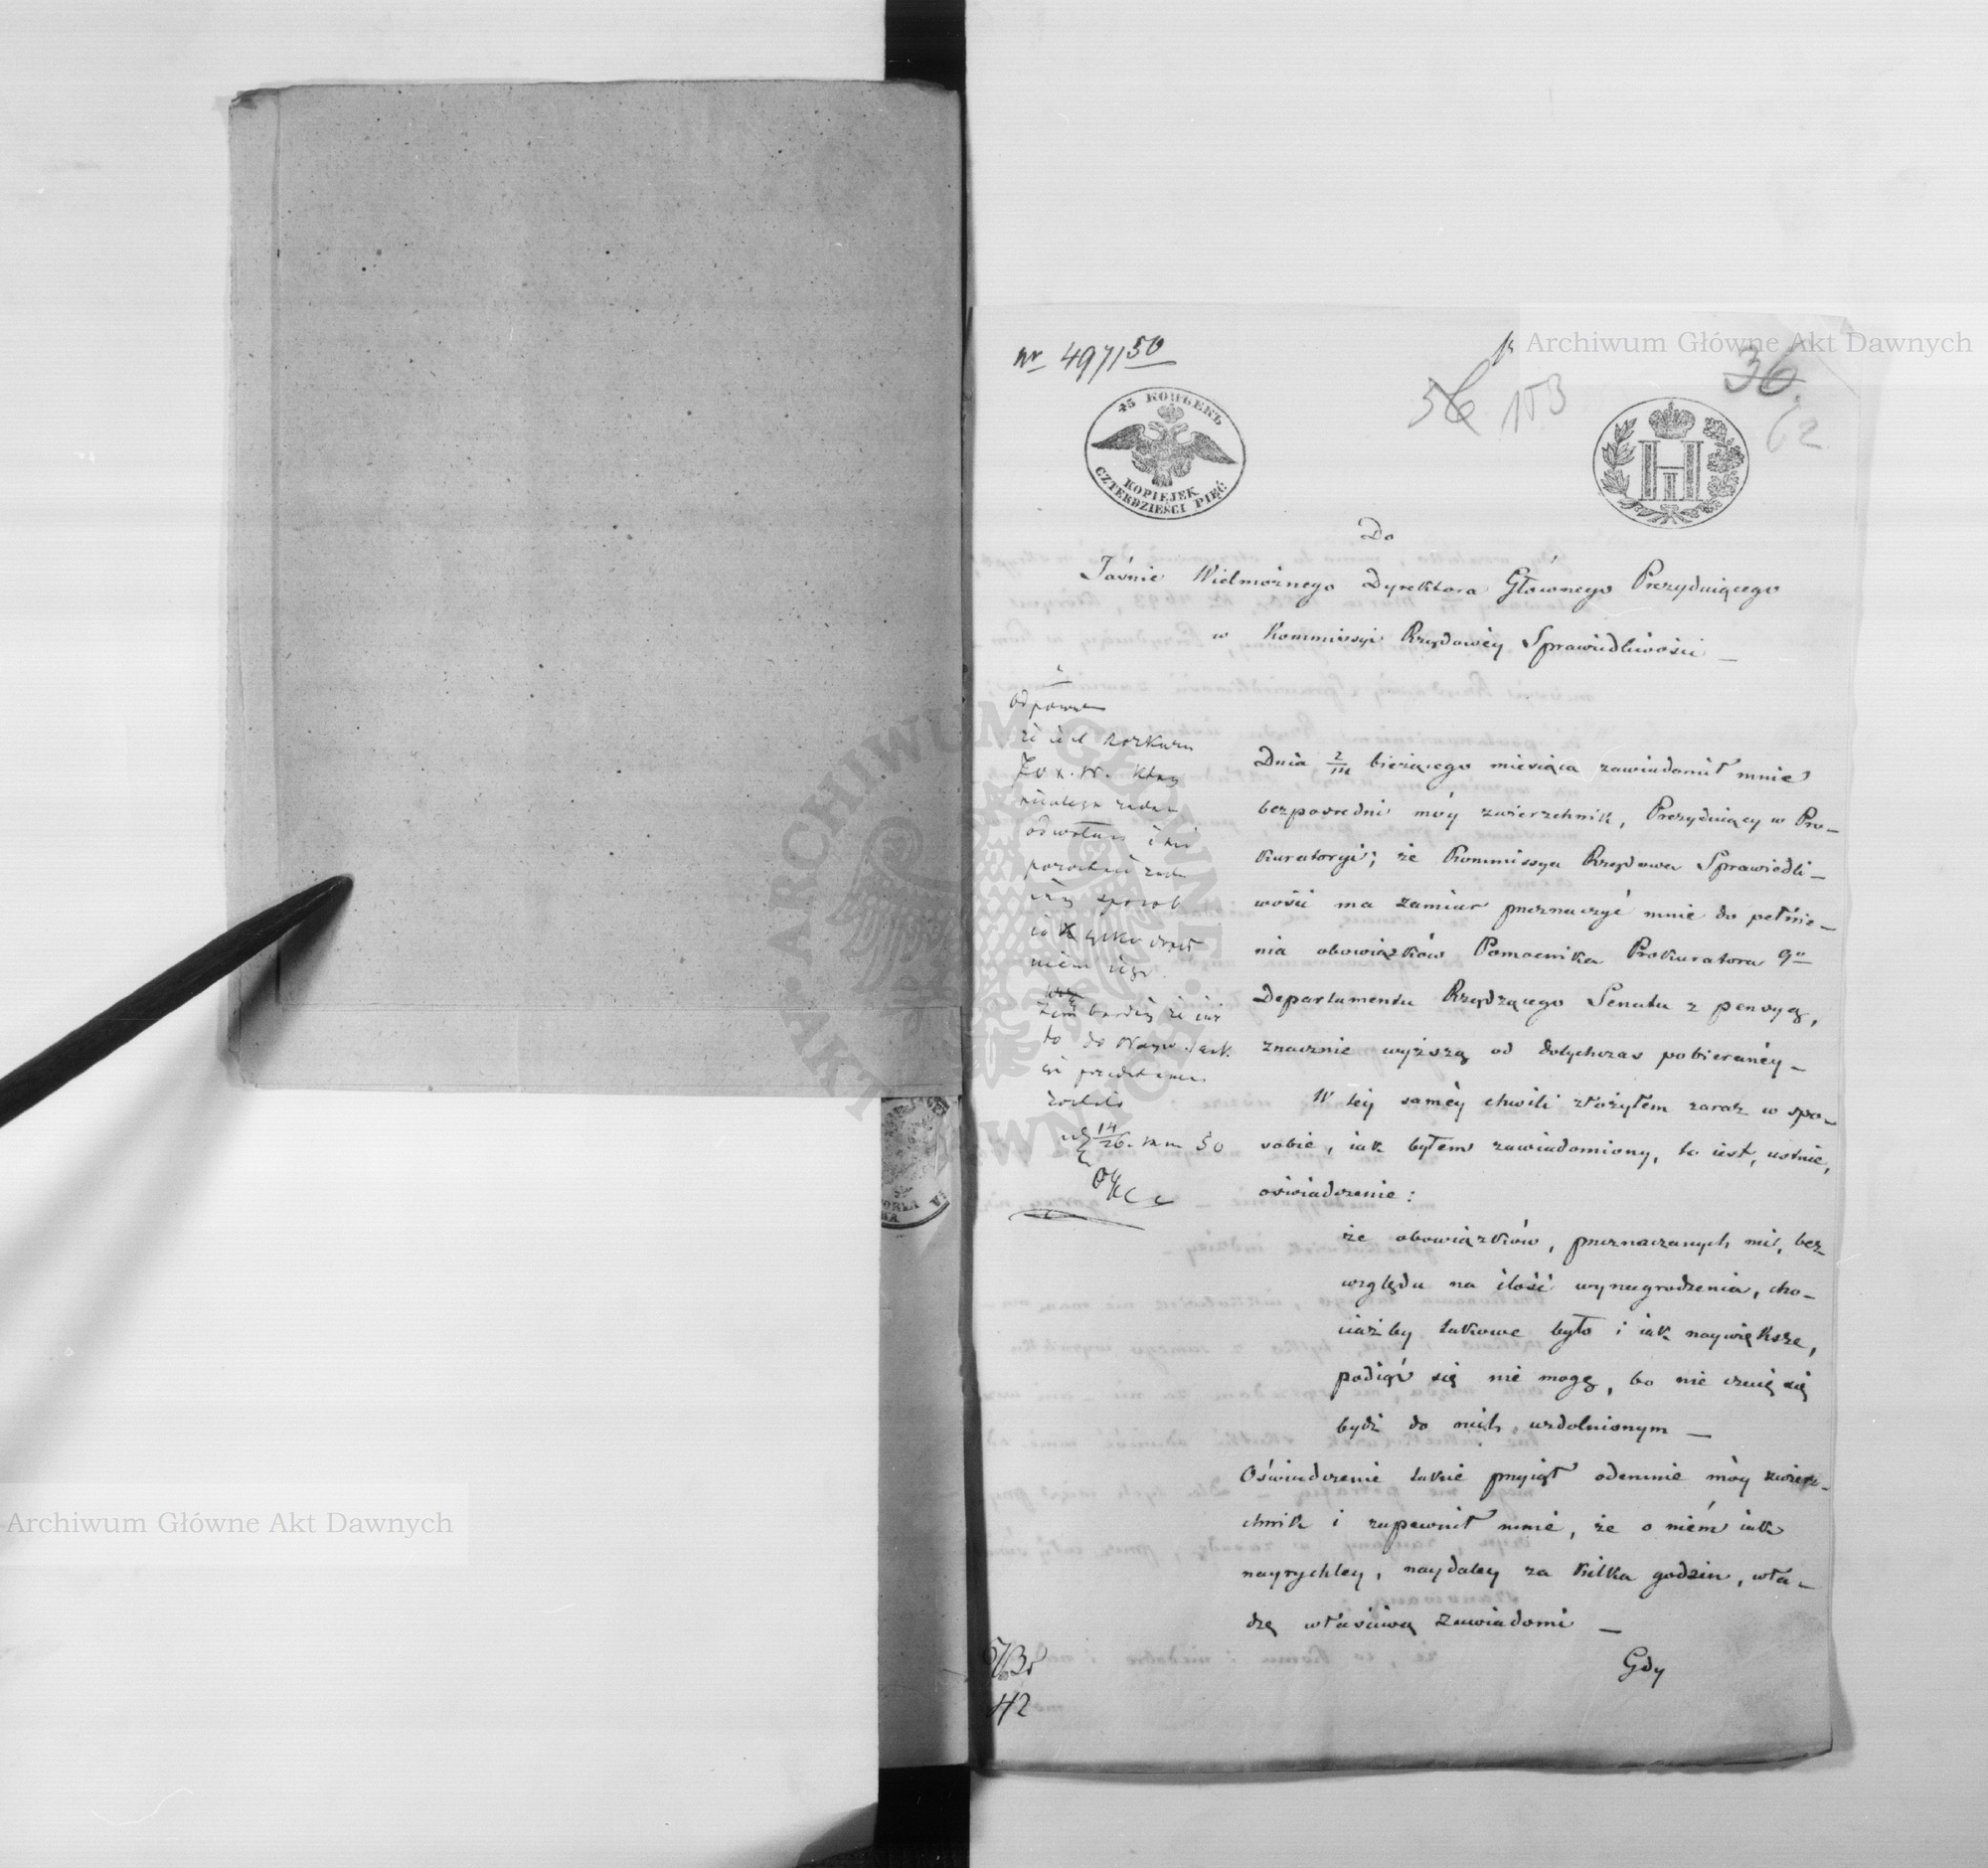 Archiwum Główne Akt Dawnych
nr 497/50
36
56 153
62
45 КОПѢЕКЪ
KOPIEJEK
CZTERDZIEŚCI PIĘĆ
Do
Jaśnie Wielmożnego Dyrektora Głównego Prezyduiącego
w Kommissyi Rządowéy Sprawiedliwości _
Dnia 2/14 bieżącego miesiąca zawiadomił mnie
bezpośredni móy zwierzchnik, Prezyduiący w Pro_
kuratoryi; że Kommissya Rządowa Sprawiedli_
wości ma zamiar przeznaczyć mnie do pełnie_
nia obowiązków Pomocnika Prokuratora 9go
Departamentu Rządzącego Senatu z pensyą,
znacznie wyższą od dotychczas pobieranéy _
W téy saméy chwili złożyłem zaraz w spo_
sobie, iak byłem zawiadomiony, to iest, ustnie,
oświadczenie:
że obowiązków, przeznaczanych mi, bez
względu na ilość wynagrodzenia, cho_
ciażby takowe było i iak naywiększe,
podiąć się nie mogę, bo nie czuię się
bydź do nich uzdolnionym _
Oświadczenie takie przyiął odemnie móy zwierz_
chnik i zapewnił mnie, że o niém iak
nayrychley, naydaley za kilka godzin, wła_
dzę właściwą zawiadomi _
Gdy
odpowie
że
odwołani
sposob
niem iego
tem bardziey że iuż
to do Nayw.
przedstawi
zostało
14/26 50
42
ARCHIWUM GŁÓWNE AKT DAWNYCH
Archiwum Główne Akt Dawnych